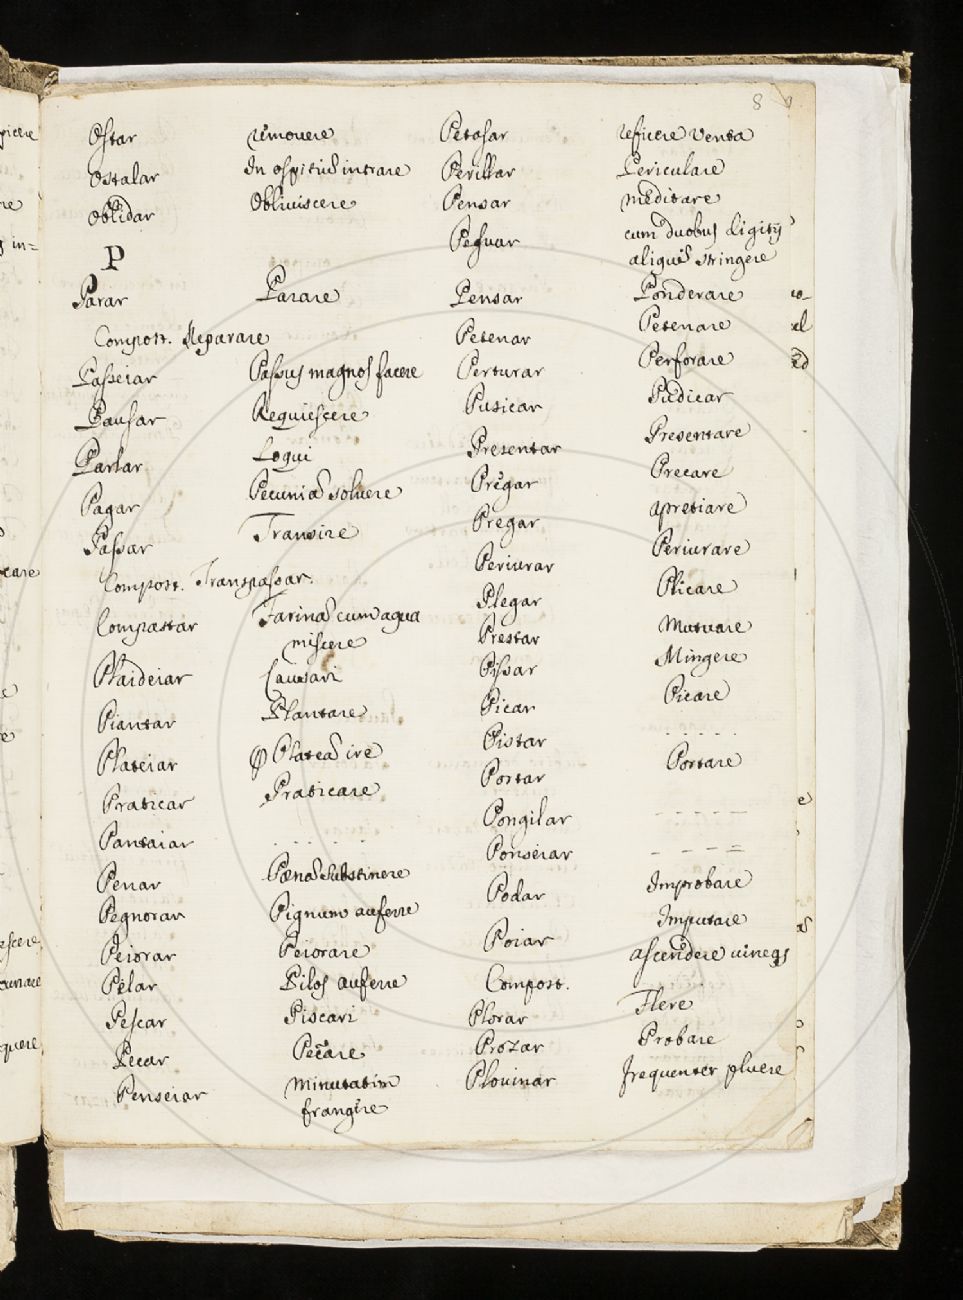 8
Ostar removere
Ostalar In ospitiũ intrare
Oblidar Obliviscere
P
Parar Parare
Compost. Reparare
Passeiar Passus magnos facere
Pausar Requiescere
Parlar Loqui
Pagar Pecuniã solvere
Passar Transire
Compost. Transpassar.
Compastar Farinã cum aqua
miscere
Plaideiar Causari
Plantar Plantare
Plateiar Plateã ire
Praticar Praticare
Pantaiar . . . .
Penar Pœnã substinere
Pegnorar Pignum auferre
Peiorar Peiorare
Pelar Pilos auferre
Pescar Piscari
Pecar Pecare
Penseiar minutatim
frangere
Petasar reficere
Perillar Periculare
Pensar meditare
cum duobus digitijs
aliquẽ stringere
Pensar Ponderare
Petenar Petenare
Perturar Perforare
Pusicar Pudicar
Presentar Presentare
Pregar Precare
Pregar apretiare
Periurar Periurare
Plegar Plicare
Prestar Mutuare
Pissar Mingere
Picar Picare
Pistar . . . . .
Portar Portare
Pongilar - - - - -
Ponseiar - - - =
Podar Improbare
Imputare
Poiar ascendere
Compost.
Plorar Flere
Prozar Probare
Plovinar frequenter pluere